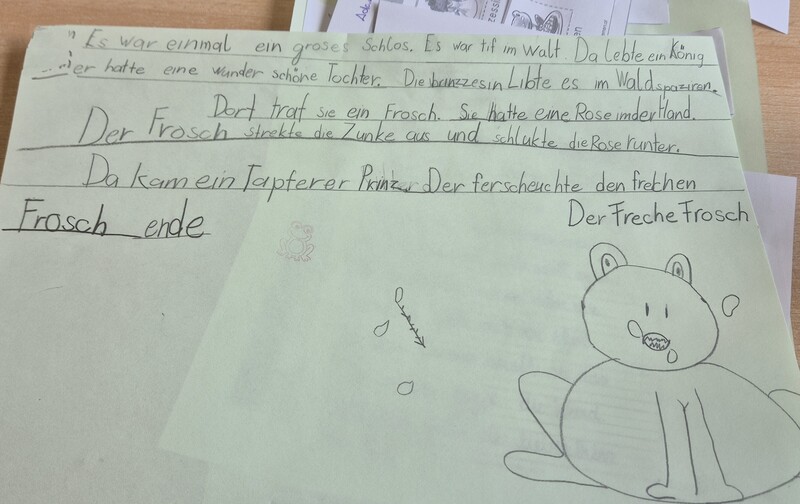 Es war einmal ein groses Schlos. Es war tif im Walt. Da lebte ein König
er hatte eine wunder schöne Tochter. Die banzzesin Libte es im Wald spaziren.
Dort traf sie ein Frosch. Sie hatte eine Rose in der Hand.
Der Frosch strekte die Zunke aus und schlukte die Rose runter.
Da kam ein Tapferer Prinz. Der ferscheuchte den frechen
Frosch ende
Der Freche Frosch